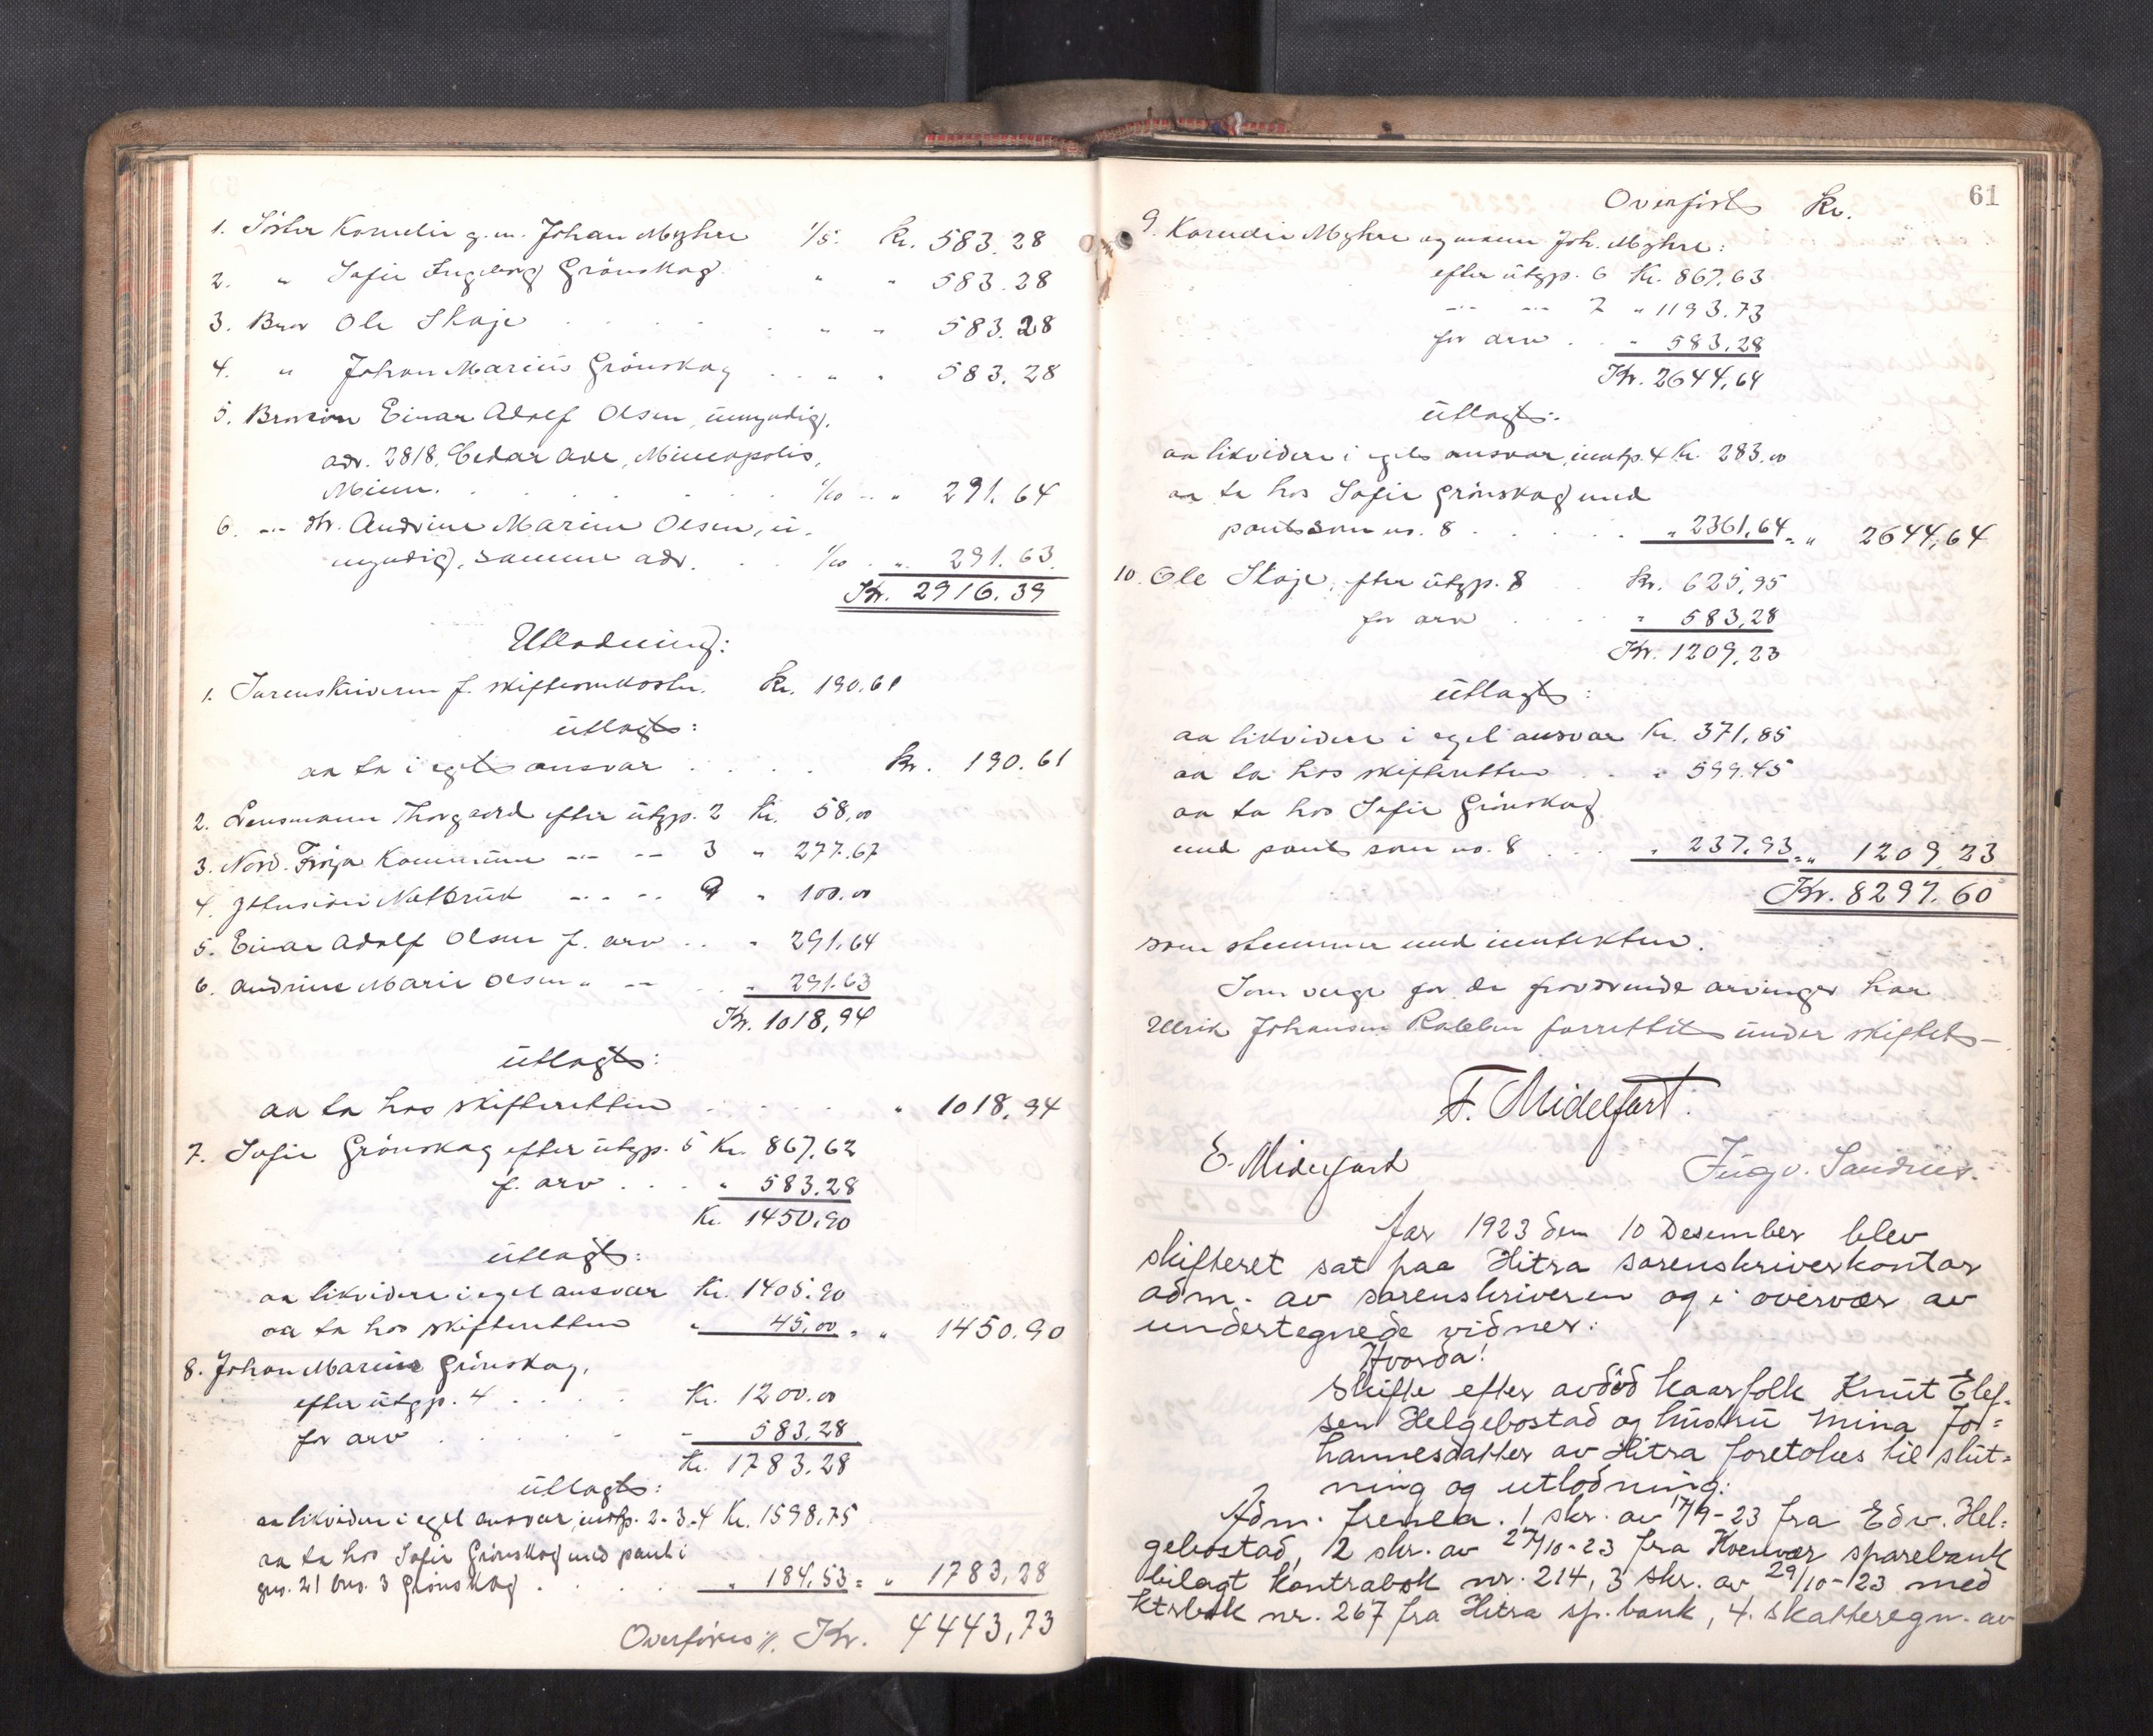 1. Søster Kornelie g. m. Johan Myhre 1/5. Kr. 583.28
2. " Sofie Ingeborg Grönskag " " 583.28
3. Bror Ole Skaje . . . . " " 583.28
4. " Johan Marius Grönskag . . " " 583.28
5. Brorsön Einar Adolf Olsen, umyndig,
adr. 2818, Cedar Ave, Mineapolis,
Minn. . . . . . 1/10 " " 291.64
6. -"- dtr. Andrine Marine Olsen, u-
myndig, samme adr. . . 1/10 . " 291.63.
Kr. 2916.39
Utlodning:
1. Sorenskriveren f. skifteomkostn. Kr. 190.61
utlagt:
aa ta i eget ansvar . . . . Kr. 190.61
2. Lensmann Thorgaard efter utgp. 2 Kr. 58,00
3. Nord-Fröja Kommune -"- -"- 3 " 277.67
4. Nalbrud -"- -"- 9 " 100.00
5. Einar Adolf Olsen f. arv . . " 291.64
6. Andrine Marie Olsen " -"- . . " 291.63
Kr. 1018,94
utlagt:
aa ta hos skifteretten . . . . . " 1018,94
7. Sofie Grönskag efter utgp. 5 Kr. 867.62
f. arv . . . " 583.28
Kr. 1450,90
utlagt:
aa likvidere i eget ansvar Kr. 1405.90
aa ta hos skifteretten " 45,00 = " 1450.90
8. Johan Marius Grönskag,
efter utgp. 4 . . . . Kr. 1200.00
for arv . . . . . " 583.28
Kr. 1783.28
utlagt:
aa likvidere i eget ansvar, inntp. 2-3-4 Kr. 1598.75
aa ta hos Sofie Grönskag med pant i
gns. 21 bns. 3 Grönskag . . . . . " 184,53 = " 1783,28
Overföres ./. Kr. 4443,73
61
Overfört Kr.
9. Kornelie Myhre og mann Joh. Myhre:
efter utgp. 6 Kr. 867,63
-"- -"- 7 " 1193.73
for arv . . " 583,28
Kr. 2644,64
utlagt:
aa likvidere i eget ansvar, inntp. 4 Kr. 283.00
aa ta hos Sofie Grönskag med
pant som no. 8 . . . . . " 2361,64 = " 2644,64
10. Ole Skaje, efter utgp. 8 . Kr. 625,95
for arv . . . . " 583,28
Kr. 1209,23
utlagt:
aa likvidere i eget ansvar Kr. 371,85
aa ta hos skifteretten . . " 599.45
aa ta hos Sofie Grönskag
med pant som no. 8 . . . " 237.93 = " 1209,23
Kr. 8297.60
som stemmer med inntekten.
Som verge for de fraværende arvinger har
Ulrik Johansen Rabben forrettet under skiftet -
F. Midelfart.
E. Midelfart Ingv. Sandnes.
Aar 1923 den 10 Desember blev
skifteret sat paa Hitra sorenskriverkontor
adm. av sorenskriveren og i overvær av
undertegnede vidner:
Hvorda!
Skifte efter avdöd kaarfolk Knut Elef-
sen Helgebostad og hustru Mina Jo=
hannesdatter av Hitra foretokes til slut=
ning og utlodning:
Adm. fremla. 1 skr. av 17/9-23 fra Edv. Hel=
gebostad, 2 skr. av 27/10-23 fra Kvenvær sparebank
bilagt kontrabok nr. 214, 3 skr. av 29/10-23 med
ktrbok nr. 267 fra Hitra sp. bank, 4. skatteregn. av